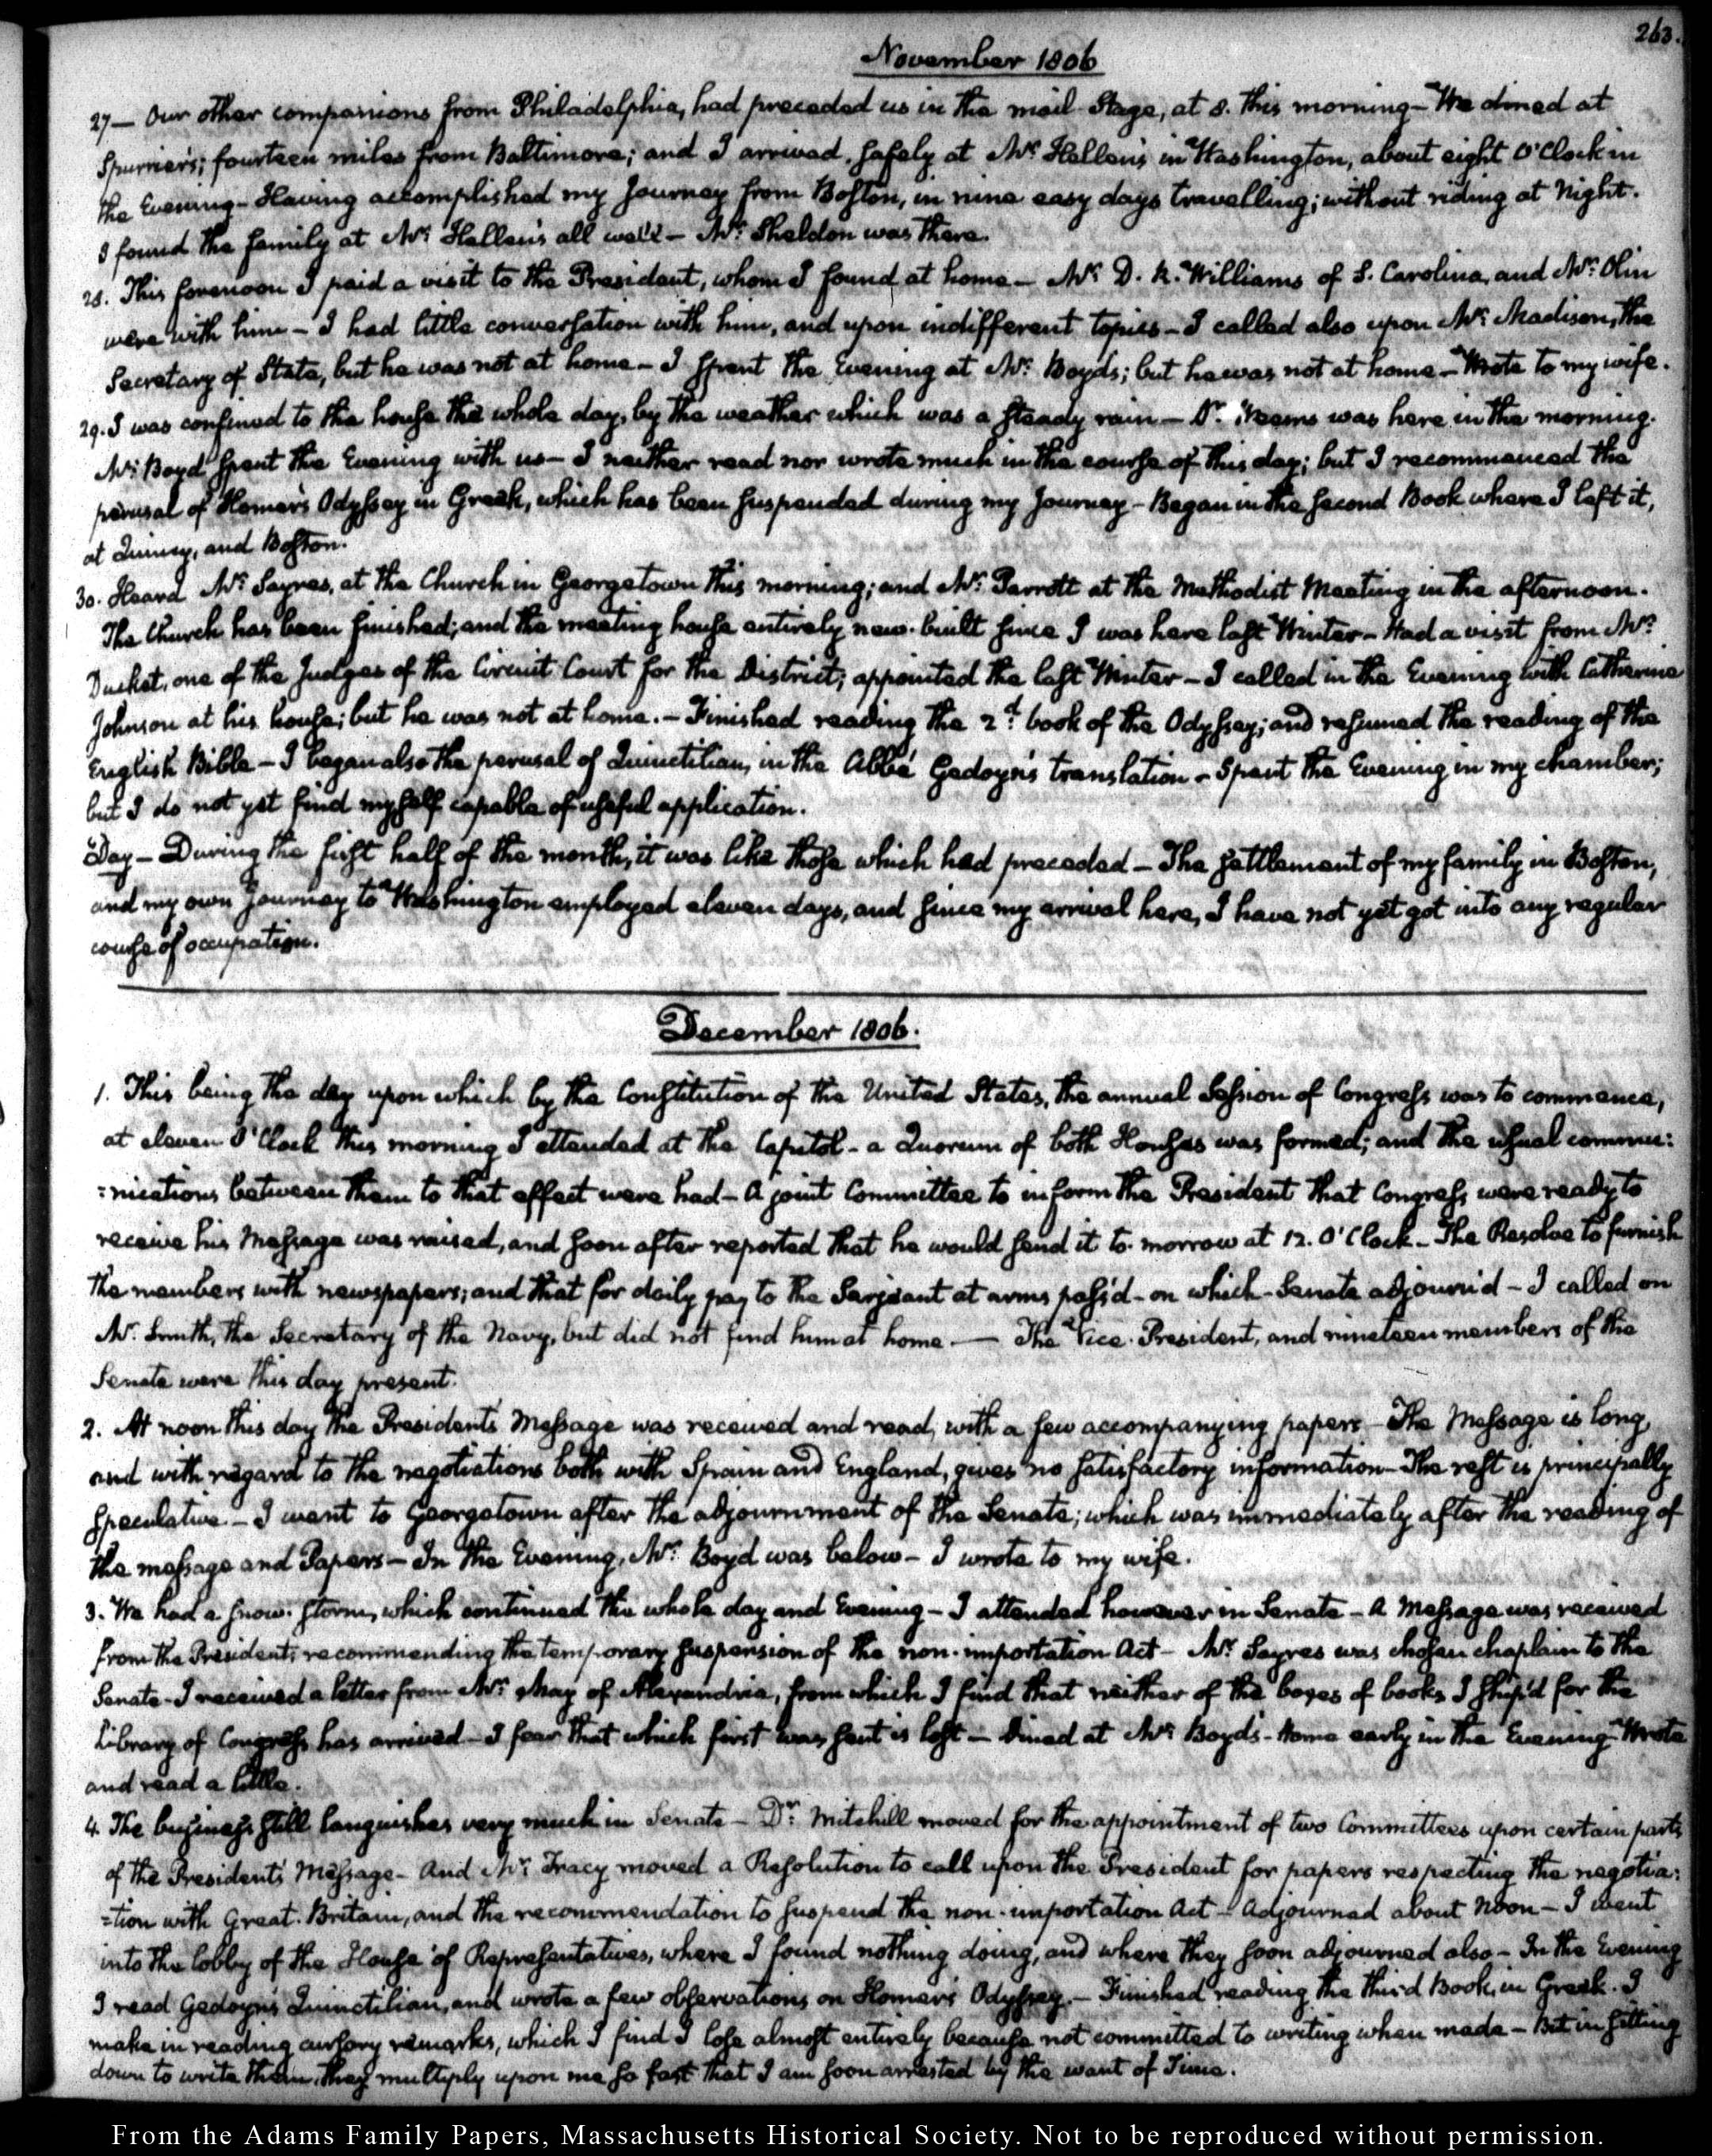 263.
November 1806
27— Our other companions from Philadelphia, had preceded us in the mail Stage, at 8. this morning— We dined at
Spurrier's; fourteen miles from Baltimore; and I arrived safely at Mr. Hellen's in Washington, about eight O'Clock in
the Evening— Having accomplished my Journey from Boston, in nine easy days travelling; without riding at Night.
I found the family at Mr. Hellen's all well— Mr. Sheldon was there.
28. This forenoon I paid a visit to the President, whom I found at home— Mr. D. R. Williams of S. Carolina, and Mr. Olin
were with him— I had little conversation with him, and upon indifferent topics— I called also upon Mr. Madison, the
Secretary of State, but he was not at home— I spent the Evening at Mr. Boyds; but he was not at home— Wrote to my wife.
29. I was confined to the house the whole day, by the weather which was a steady rain— Dr. Weems was here in the morning.
Mr. Boyd spent the Evening with us— I neither read nor wrote much in the course of this day; but I recommenced the
perusal of Homer's Odyssey in Greek, which has been suspended during my Journey— Began in the second Book where I left it,
at Quincy, and Boston.
30. Heard Mr. Sayres, at the Church in Georgetown this morning; and Mr. Parrott at the Methodist Meeting in the afternoon.
The Church has been finished; and the meeting house entirely new-built since I was here last Winter— Had a visit from Mr.
Ducket, one of the Judges of the Circuit Court for the District; appointed the last Winter— I called in the Evening with Catherine
Johnson at his house; but he was not at home.— Finished reading the 2d. book of the Odyssey; and resumed the reading of the
English Bible— I began also the perusal of Quinctilian, in the Abbé Gedoyn's translation— Spent the Evening in my chamber;
but I do not yet find myself capable of useful application.
Day— During the first half of the month, it was like those which had preceded— The settlement of my family in Boston,
and my own journey to Washington employed eleven days, and since my arrival here, I have not yet got into any regular
course of occupation.
December 1806.
1. This being the day upon which by the Constitution of the United States, the annual Session of Congress was to commence,
at eleven O'Clock this morning I attended at the Capitol— a Quorum of both Houses was formed; and the usual commu:
:nications between them to that effect were had— A joint Committee to inform the President that Congress were ready to
receive his Message was raised, and soon after reported that he would send it to-morrow at 12. O'Clock— The Resolve to furnish
the members with newspapers; and that for daily pay to the Serjeant at arms pass'd— on which Senate adjourn'd— I called on
Mr. Smith, the Secretary of the Navy, but did not find him at home.— The Vice-President, and nineteen members of the
Senate were this day present.
2. At noon this day the President's Message was received and read, with a few accompanying papers— The Message is long,
and with regard to the negotiations both with Spain and England, gives no satisfactory information— The rest is principally
speculative— I went to Georgetown after the adjournment of the Senate; which was immediately after the reading of
the message and Papers— In the Evening, Mr. Boyd was below— I wrote to my wife.
3. We had a snow-storm, which continued the whole day and Evening— I attended however in Senate— A Message was received
from the President; recommending the temporary suspension of the non-importation Act— Mr. Sayres was chosen chaplain to the
Senate— I received a letter from Mr. May of Alexandria, from which I find that neither of the boxes of books I ship'd for the
Library of Congress has arrived— I fear that which first was sent is lost— Dined at Mr. Boyd's— Home early in the Evening— Wrote
and read a little.
4. The business still languishes very much in Senate— Dr. Mitchill moved for the appointment of two Committees upon certain parts
of the President's Message— And Mr. Tracy moved a Resolution to call upon the President for papers respecting the negotia:
:tion with Great-Britain, and the recommendation to suspend the non-importation Act— Adjourned about Noon— I went
into the lobby of the House of Representatives, where I found nothing doing, and where they soon adjourned also— In the Evening
I read Gedoyn's Quinctilian, and wrote a few observations on Homer's Odyssey.— Finished reading the third Book, in Greek. I
make in reading cursory remarks, which I find I lose almost entirely because not committed to writing when made— But in sitting
down to write them, they multiply upon me so fast that I am soon arrested by the want of Time.
From the Adams Family Papers, Massachusetts Historical Society. Not to be reproduced without permission.